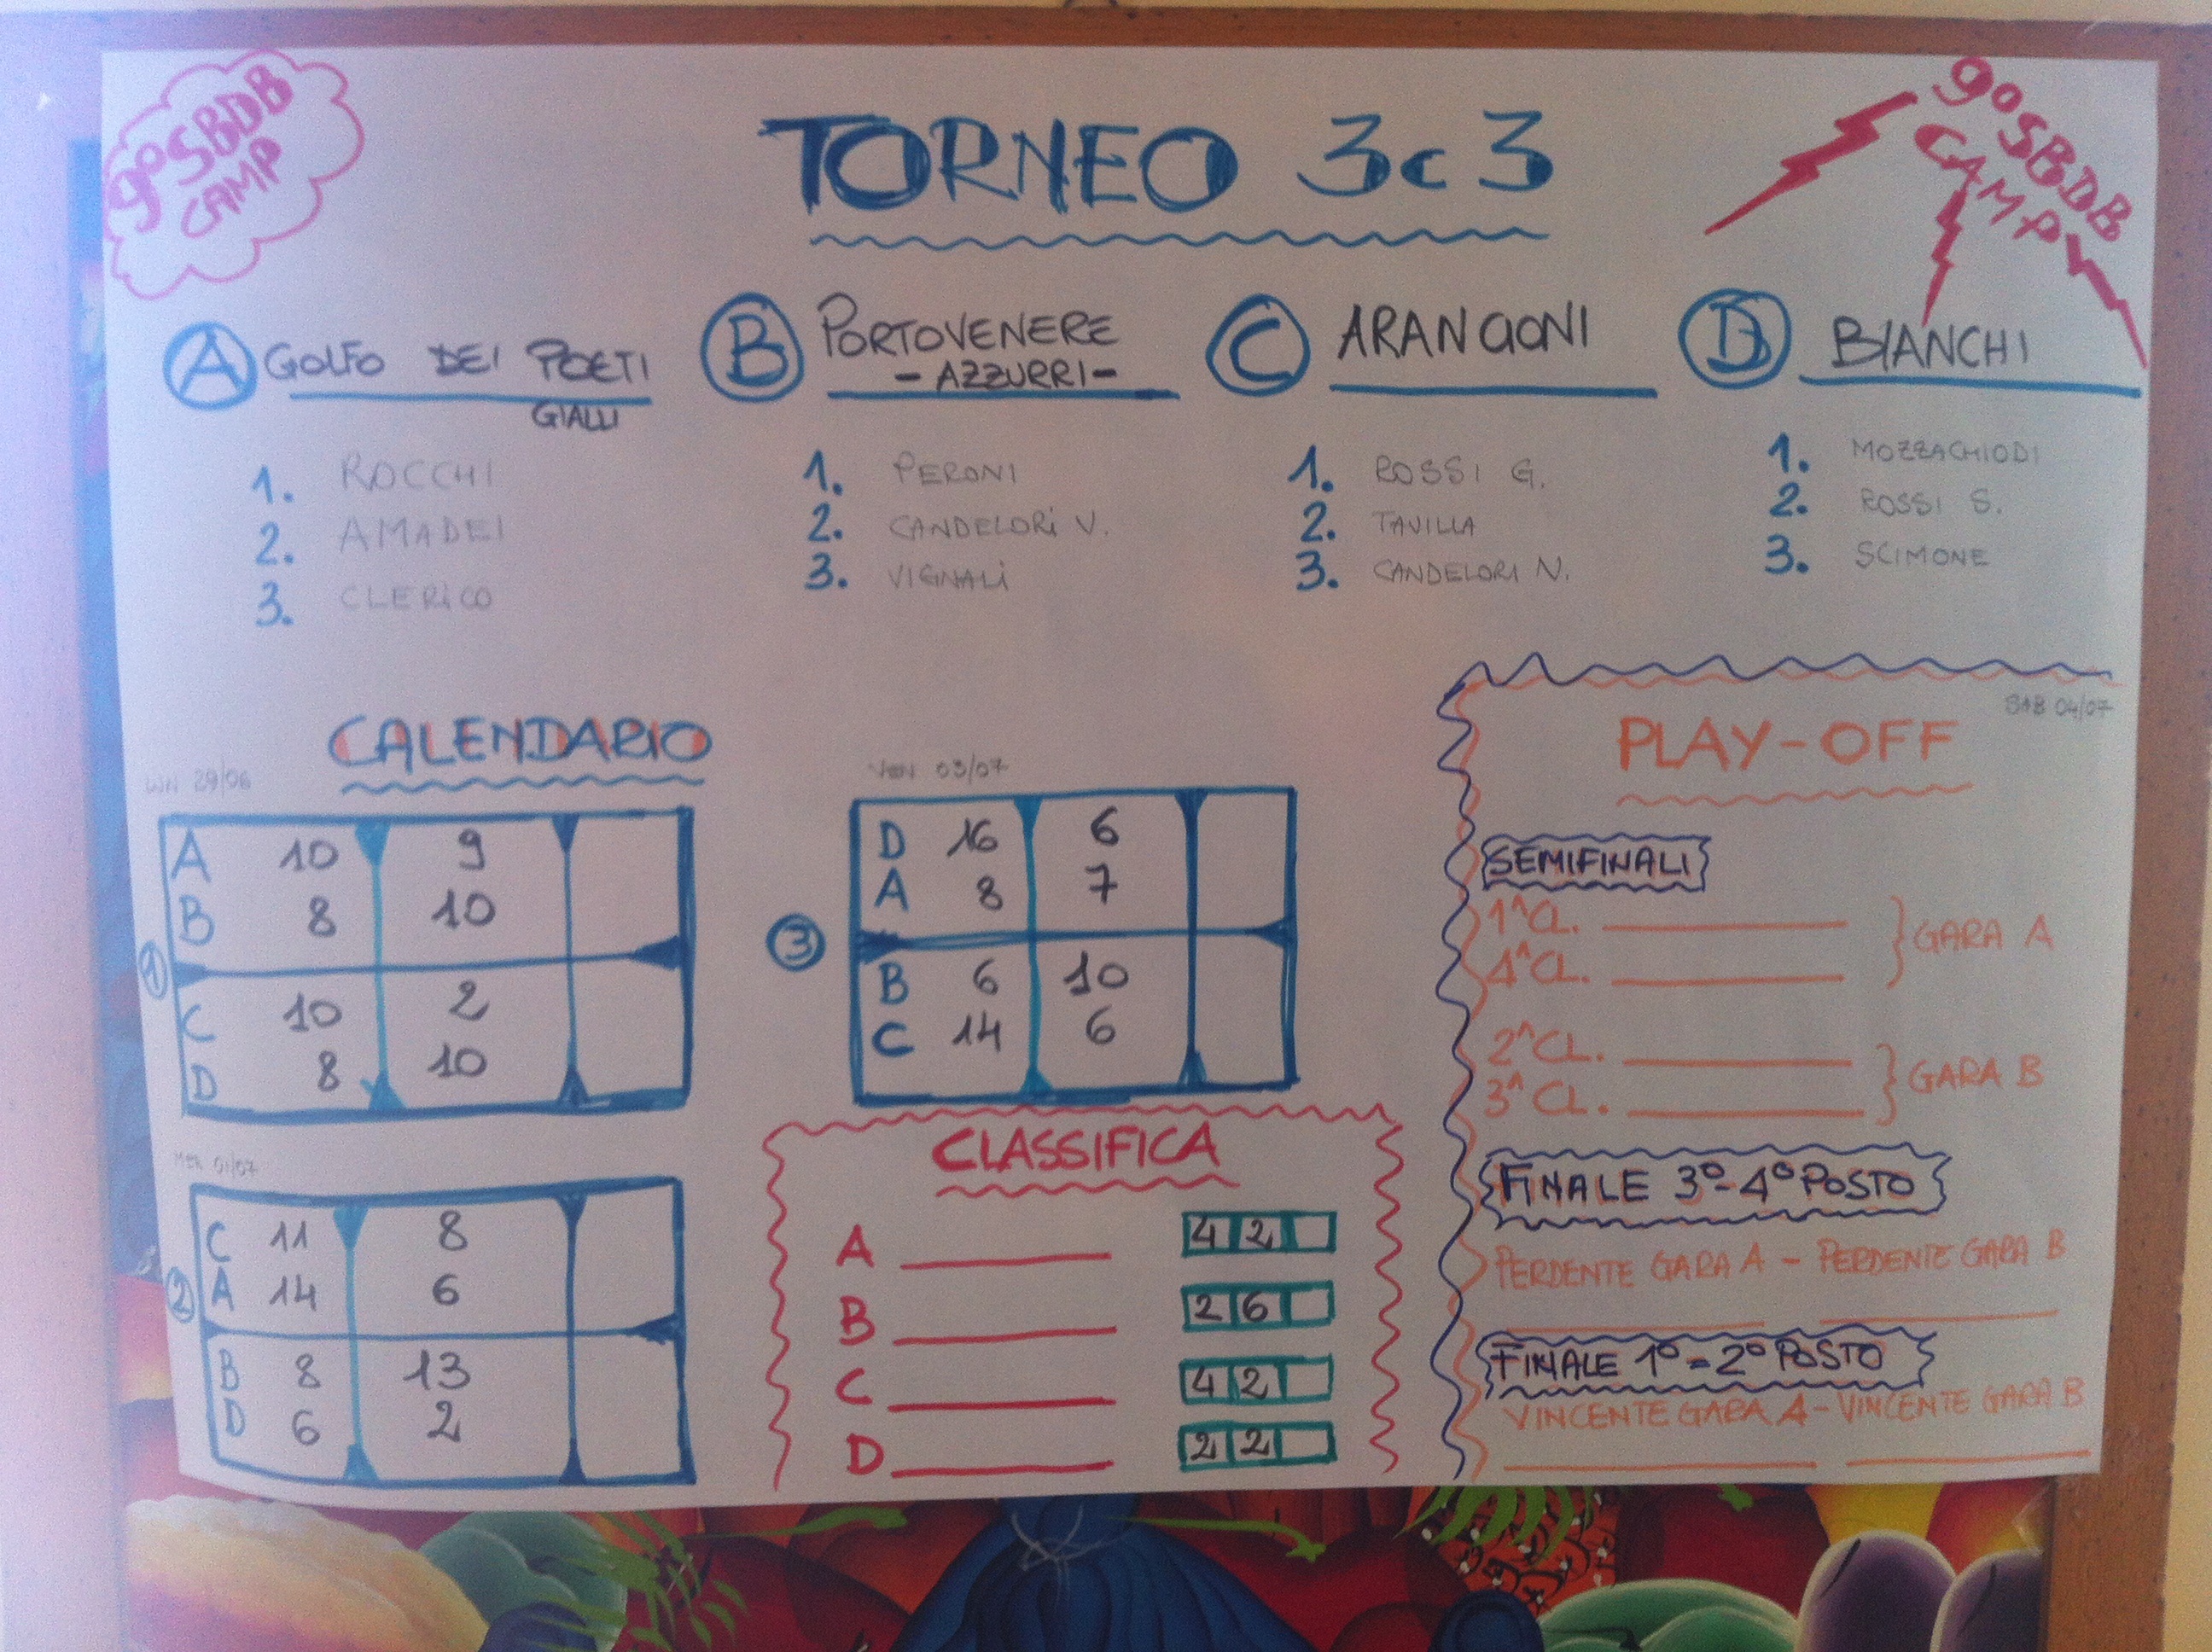 9° SBDB
CAMP
TORNEO 3c3
9° SBDB
CAMP
A GOLFO DEI POETI
GIALLI
1. ROCCHI
2. AMADEI
3. CLERICO
B PORTOVENERE
- AZZURRI -
1. PERONI
2. CANDELORI V.
3. VIGNALI
C ARANCIONI
1. ROSSI G.
2. TAVILLA
3. CANDELORI N.
D BIANCHI
1. MOZZACHIODI
2. ROSSI S.
3. SCIMONE
CALENDARIO
LUN 29/06
1
A 10 9
B 8 10
C 10 2
D 8 10
MER 01/07
2
C 11 8
A 14 6
B 8 13
D 6 2
VEN 03/07
3
D 16 6
A 8 7
B 6 10
C 14 6
CLASSIFICA
A 4 2
B 2 6
C 4 2
D 2 2
SAB 04/07
PLAY-OFF
SEMIFINALI
1^CL.
4^CL.
GARA A
2^CL.
3^CL.
GARA B
FINALE 3°-4° POSTO
PERDENTE GARA A - PERDENTE GARA B
FINALE 1°=2° POSTO
VINCENTE GARA A - VINCENTE GARA B